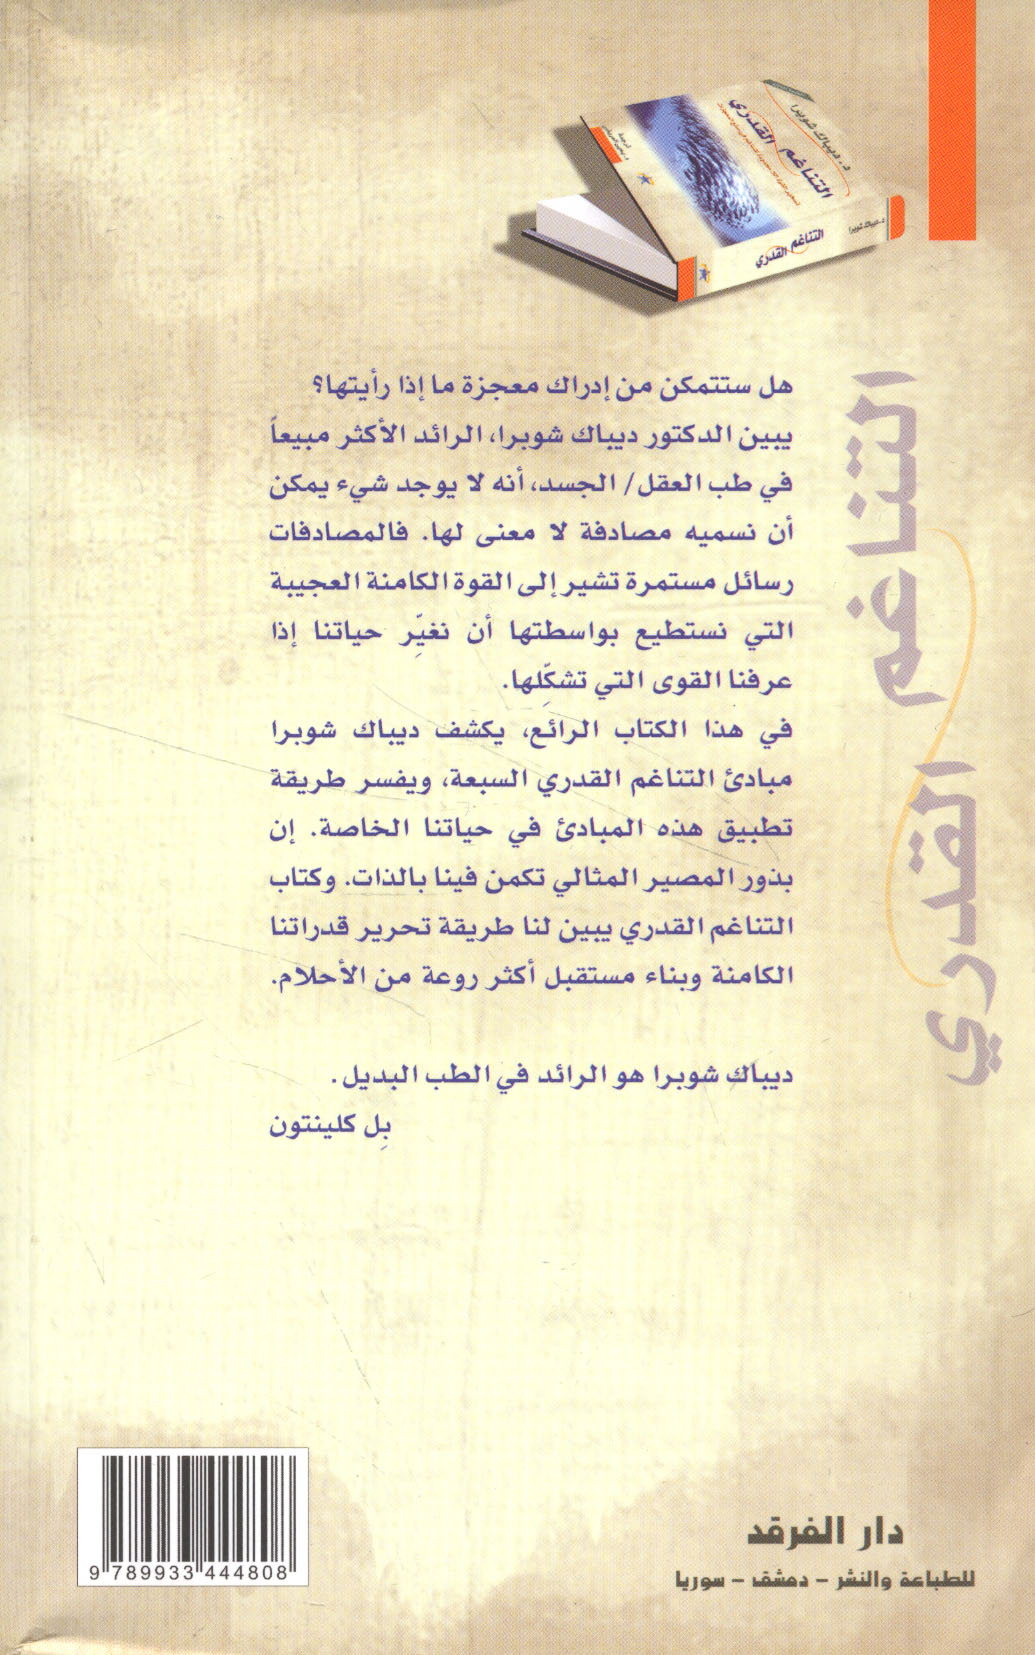 د. ديباك شوبرا
التناغم القدري
التناغم القدري
د. ديباك شوبرا
هل ستتمكن من إدراك معجزة ما إذا رأيتها؟
يبين الدكتور ديباك شوبرا، الرائد الأكثر مبيعاً
في طب العقل/ الجسد، أنه لا يوجد شيء يمكن
أن نسميه مصادفة لا معنى لها. فالمصادفات
رسائل مستمرة تشير إلى القوة الكامنة العجيبة
التي نستطيع بواسطتها أن نغيِّر حياتنا إذا
عرفنا القوى التي تشكِّلها.
في هذا الكتاب الرائع، يكشف ديباك شوبرا
مبادئ التناغم القدري السبعة، ويفسر طريقة
تطبيق هذه المبادئ في حياتنا الخاصة. إن
بذور المصير المثالي تكمن فينا بالذات. وكتاب
التناغم القدري يبين لنا طريقة تحرير قدراتنا
الكامنة وبناء مستقبل أكثر روعة من الأحلام.
ديباك شوبرا هو الرائد في الطب البديل.
بِل كلينتون
التناغم القدري
دار الفرقد
للطباعة والنشر - دمشق - سوريا
9 789933 444808